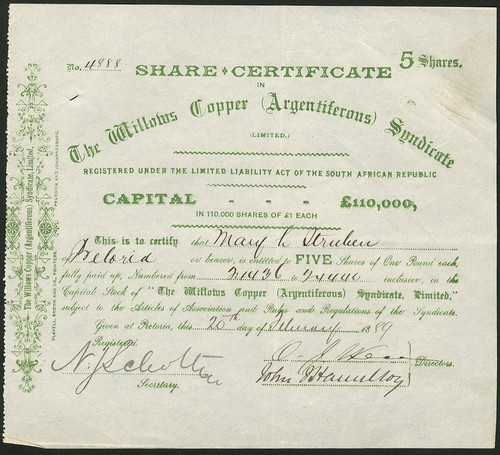 No. 4888
5 Shares.
SHARE CERTIFICATE
IN
The Willows Copper (Argentiferous) Syndicate
(LIMITED.)
REGISTERED UNDER THE LIMITED LIABILITY ACT OF THE SOUTH AFRICAN REPUBLIC
CAPITAL - - - £110,000,
IN 110,000 SHARES OF £1 EACH
This is to certify that Mary L Struben
of Pretoria or bearer, is entitled to FIVE Shares of One Pound each,
fully paid up, Numbered from 24436 to 24440 inclusive, in the
Capital Stock of "The Willows Copper (Argentiferous) Syndicate, Limited,"
subject to the Articles of Association and Rules and Regulations of the Syndicate.
Given at Pretoria, this 20th day of February 1889
Registered.
Secretary.
John Hamilton
Directors.
The Willows Copper (Argentiferous) Syndicate, Limited.